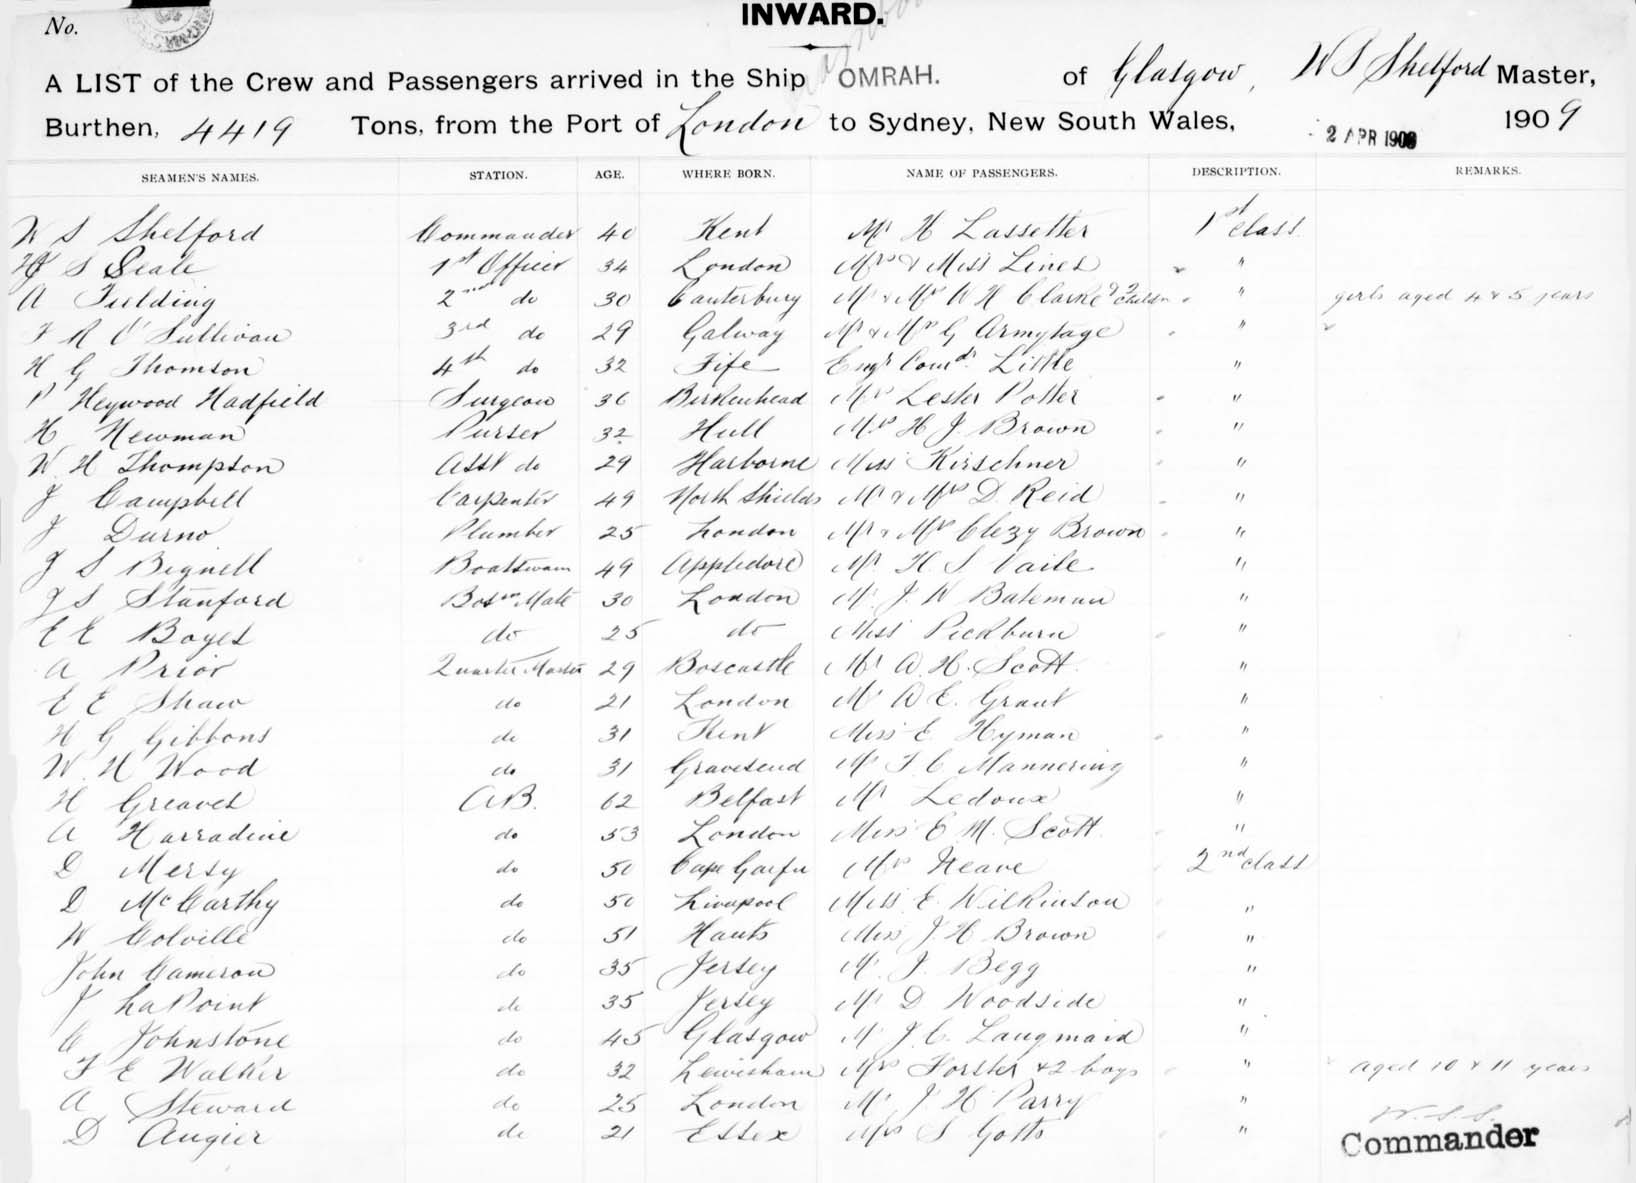 INWARD.
No.
A LIST of the Crew and Passengers arrived in the Ship OMRAH. of Glasgow, W S Shelford Master,
Burthen, 4419 Tons, from the Port of London to Sydney, New South Wales, 2 APR 1909 1909
SEAMEN'S NAMES. STATION. AGE. WHERE BORN. NAME OF PASSENGERS. DESCRIPTION. REMARKS.
W S Shelford Commander 40 Kent Mr H Lassetter 1st Class
S Seale 1st Officer 34 London Mrs & Miss Lines "
A Fielding 2nd do 30 Canterbury Mr & Mrs W H Clarke & 2 Childn " girls aged 4 & 5 years
F R O'Sullivan 3rd do 29 Galway Mr & Mrs G Armytage "
H G Thomson 4th do 32 Fife Engr Comdr Little "
P Heywood Hadfield Surgeon 36 Birkenhead Mrs Lester Potter "
H Newman Purser 32 Hull Mrs H J. Brown "
W. H Thompson Asst do 29 Harborne Miss Kirschner "
J Campbell Carpenter 49 North Shields Mr & Mrs D. Reid "
J Durno Plumber 25 London Mr & Mrs Clezy Brown "
J S Bignell Boatswain 49 Appledore Mr H. S Vaile "
J S Stanford Bosn Mate 30 London Mr J. W Bateman "
E E Boyes do 25 do Miss Pickburn "
A Prior Quarter Master 29 Boscastle Mr A. H. Scott "
E E Shaw do 21 London Mr A E. Grant "
H G Gibbons do 31 Kent Miss E Hyman "
W. H Wood do 31 Gravesend Mr F C Mannering "
H Greaves A.B. 62 Belfast Mr Ledoux "
A Harradine do 53 London Miss E M. Scott "
D Mersy do 50 Cape Mrs Neave 2nd class
D McCarthy do 50 Liverpool Miss E. Wilkinson "
W Colville do 51 Hants Miss J. H Brown "
John Cameron do 35 Jersey Mr J Begg "
J LaPoint do 35 Jersey Mr D Woodside "
C Johnstone do 45 Glasgow Mr J. C. Langmaid "
F E Walker do 32 Lewisham Mrs Forster & 2 boys " aged 10 & 11 years
A Steward do 25 London Mr J. H Parry "
D Augier do 21 Essex Mrs S Gotts "
W. S. S.
Commander